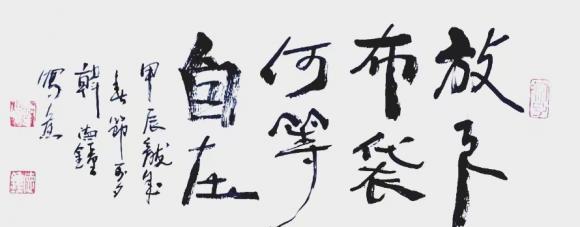 放下
布袋
何等
自在
甲辰龙年
春节前夕
韩
写意